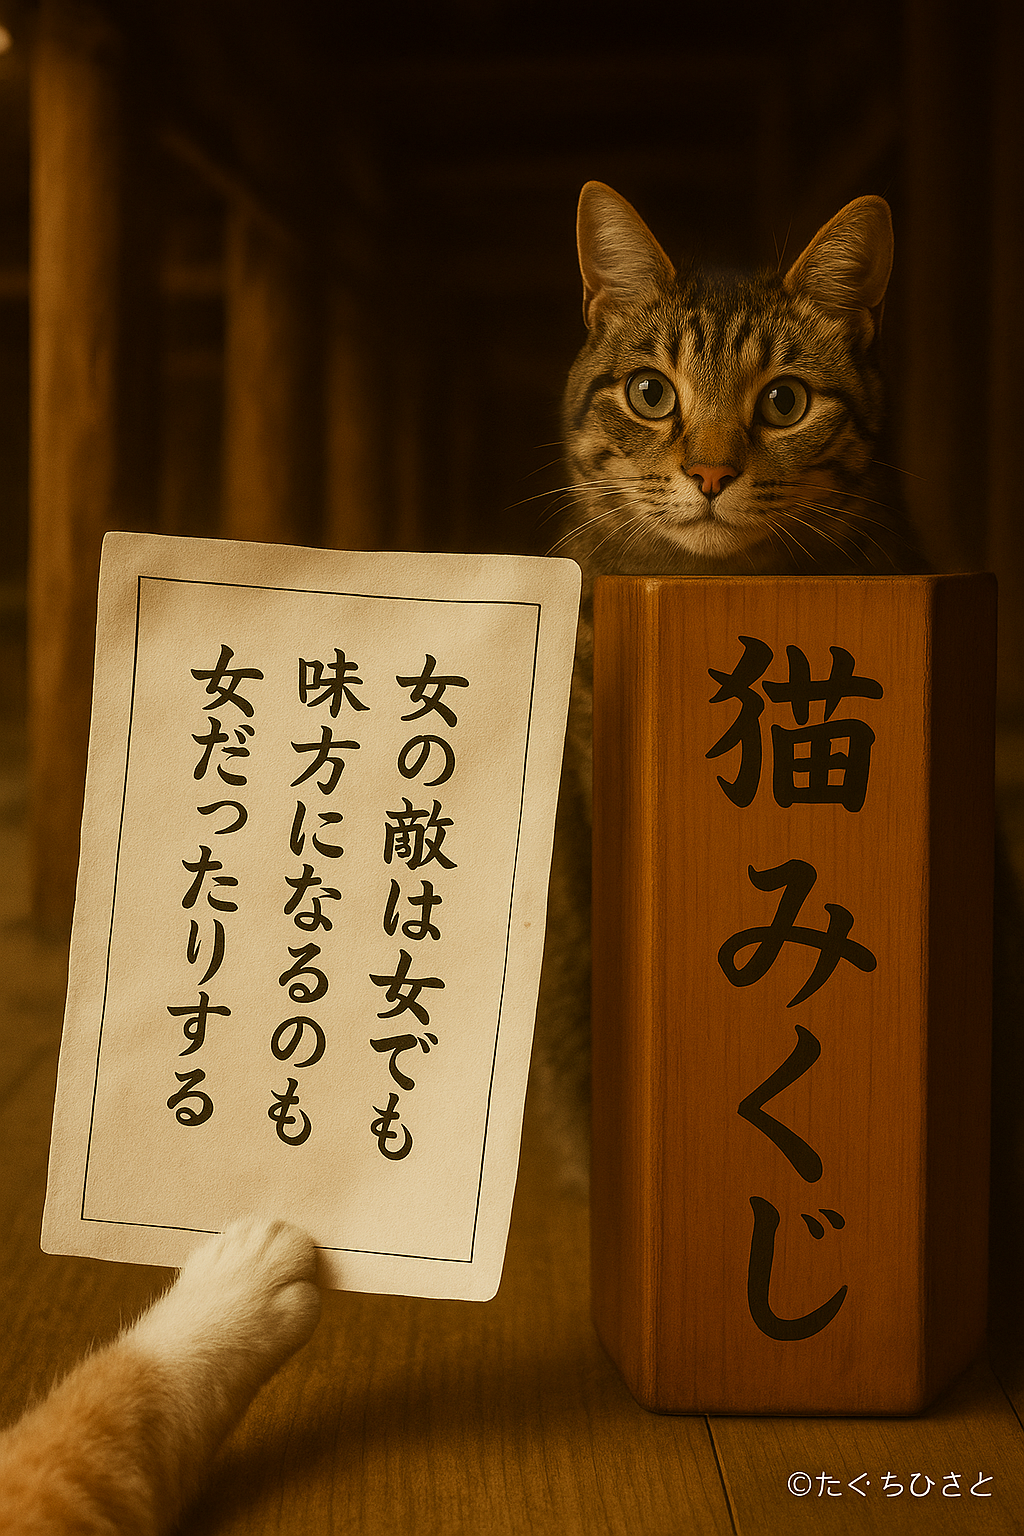 女の敵は女でも
味方になるのも
女だったりする
猫みくじ
©たぐちひさと